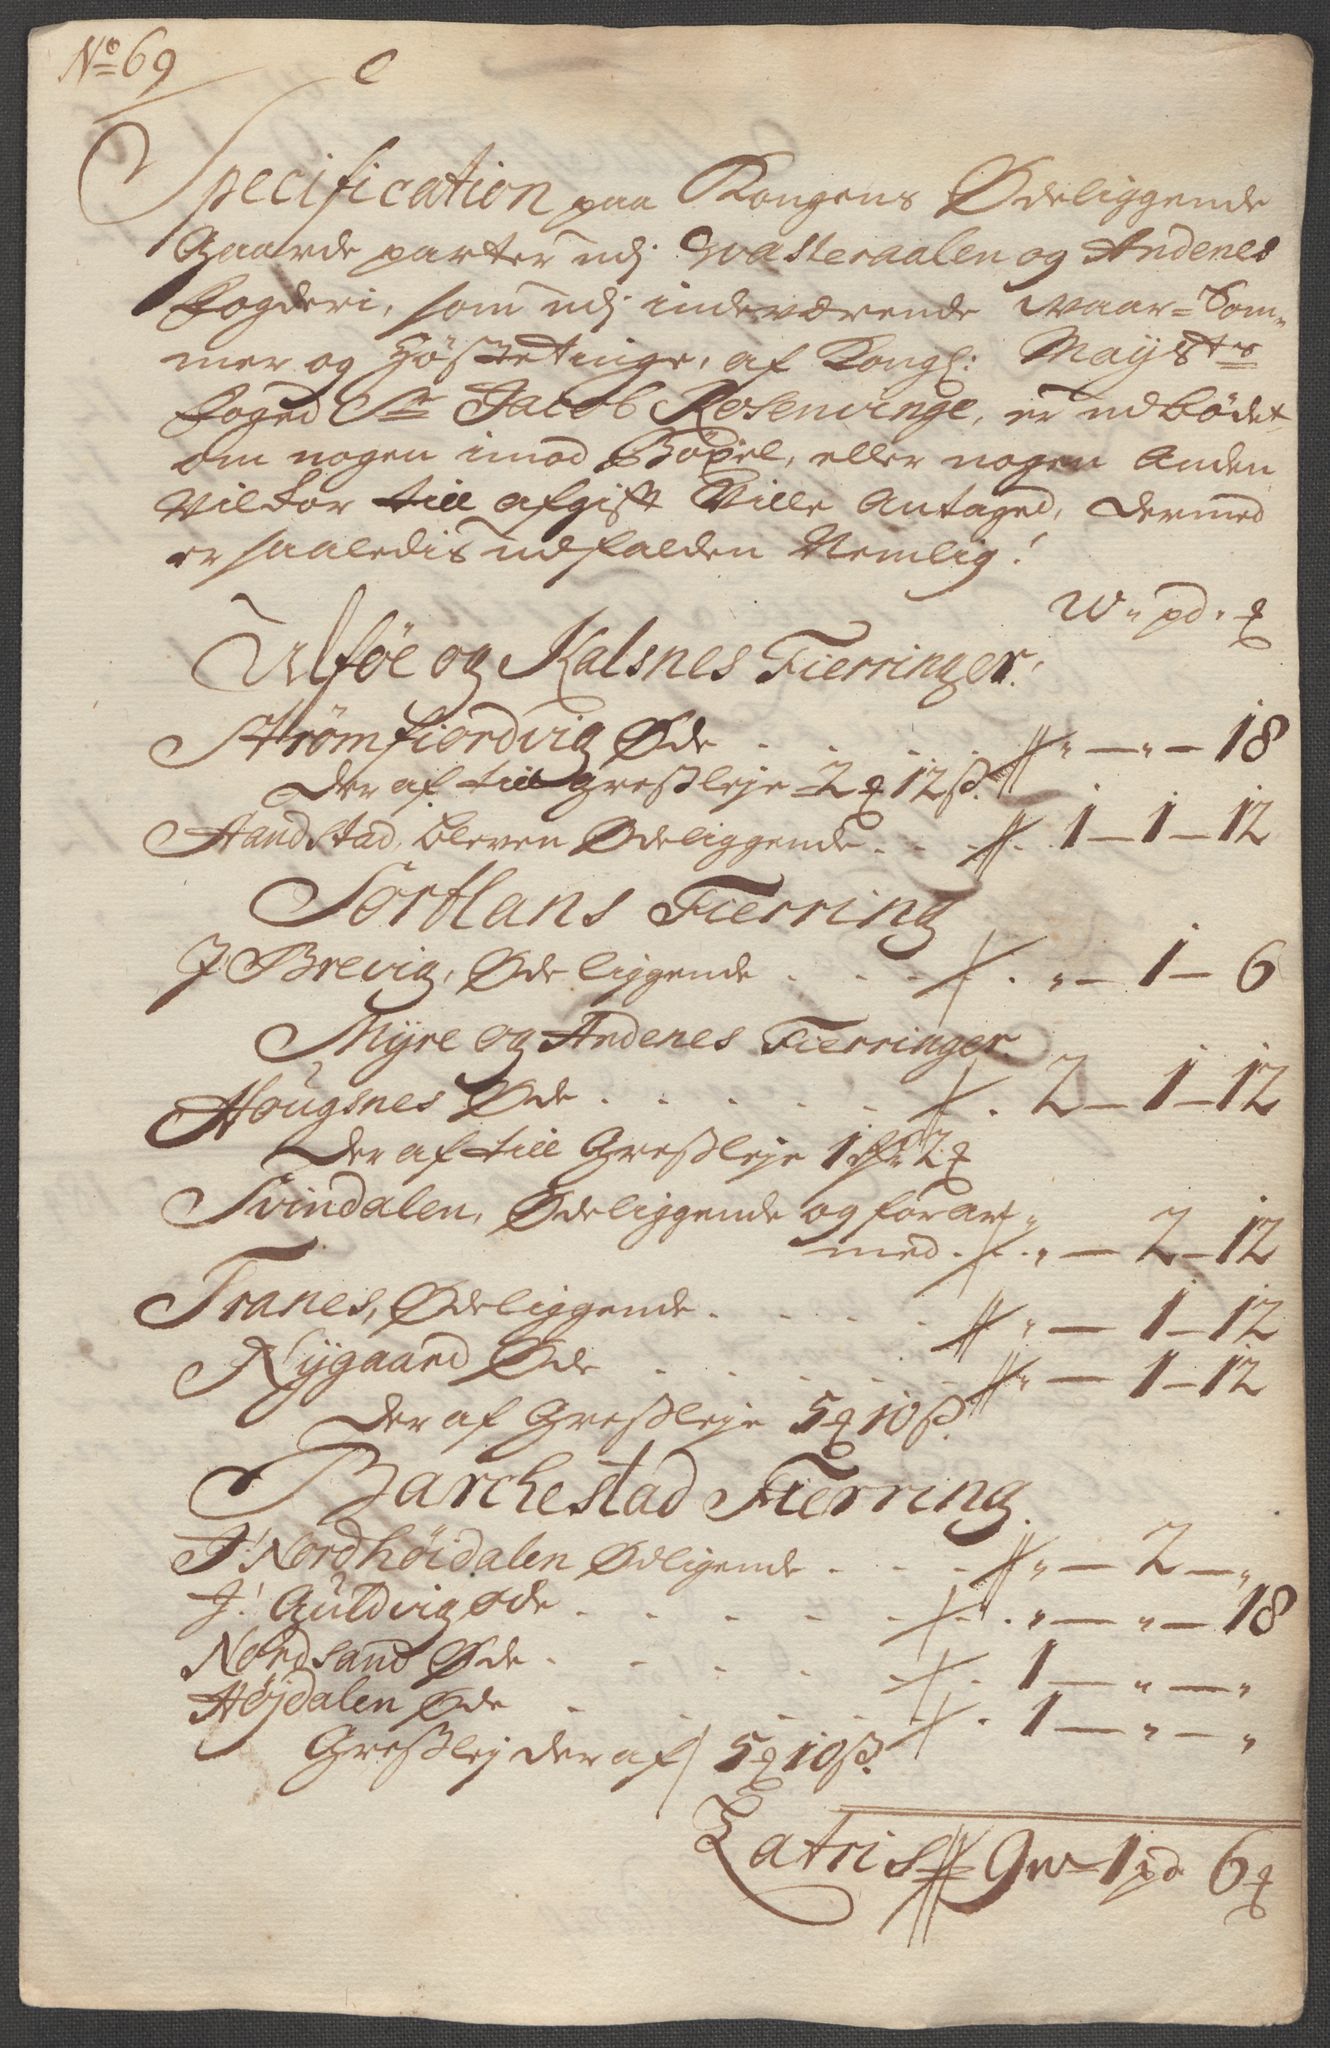 No 69 C
Specification paa Kongens Ødeliggende
Gaarde parter udj Wasteraalen og Andenes
Fogderi, som udj indeværende Waar- Som-
mer og Höstetinge, af Kongl: Mayjsts
Foged Sr Jacob Rosenvinge, er udbödet
om nogen imod Böxel, eller nogen Anden
Vilkor till afgift Ville Antaged, dermed
er saaledis udfalden Nemlig!
W " pd " ʠ
Ulföe og Kalsnes Fierringer.
Strömfiordvig Øde . . . . " — " — 18
Der af till Gresleje 2 ʠ 12 ß.
Aandstad, bleven Ødeliggende . . . 1 — 1 — 12
Sortlans Fierring
J Brevig, Ødeliggende . . . . " — 1 — 6
Myre og Andenes Fierringer.
Hougsnes Øde . . . . . . 2 — 1 — 12
Der af till Gresleje 2 ʠ
Svindalen, Ødeliggende og forar-
med . . " — 2 — 12
Tranes, Ødeliggende . . . . " — 1 — 12
Nygaard Øde . . . . . " — 1 — 12
Der af Gresleje 5 ʠ 10 ß.
Barchestad Fierring.
J Nordhöidalen Ødligende . . . " — 2 — "
J Guldvig Øde . . . . . . " — " — 18
Nordsand Øde . . . . . 1 — " — "
Höjdalen Øde . . . . . 1 — " — "
Greslej der af / 5 ʠ 10 ß.
Latris 9 w 1 pd 6 ʠ